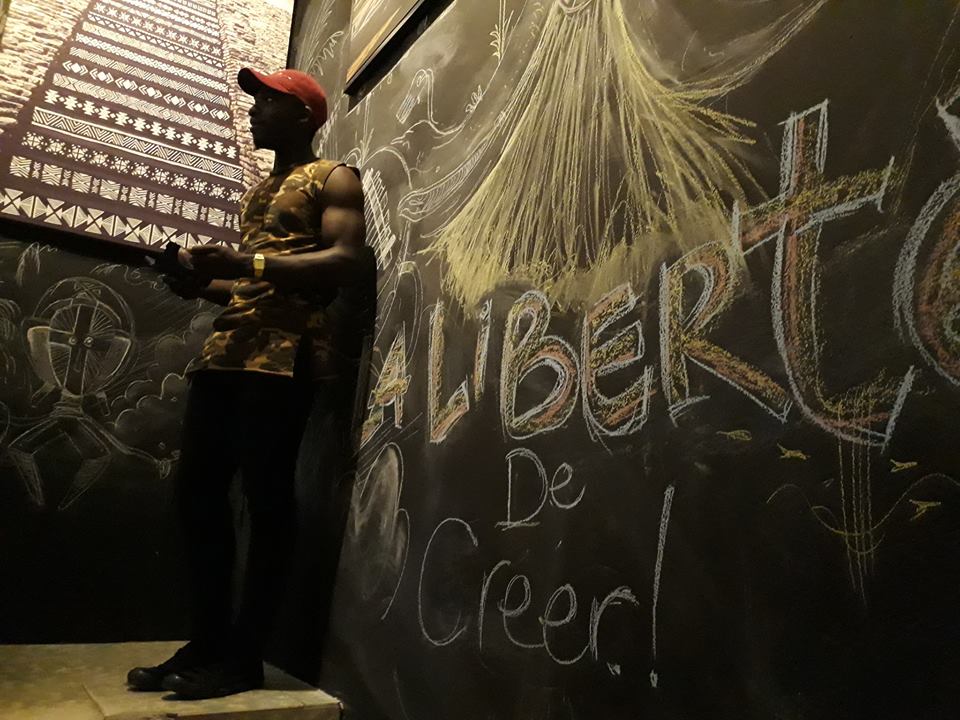 LA LIBERté
De
Créer!